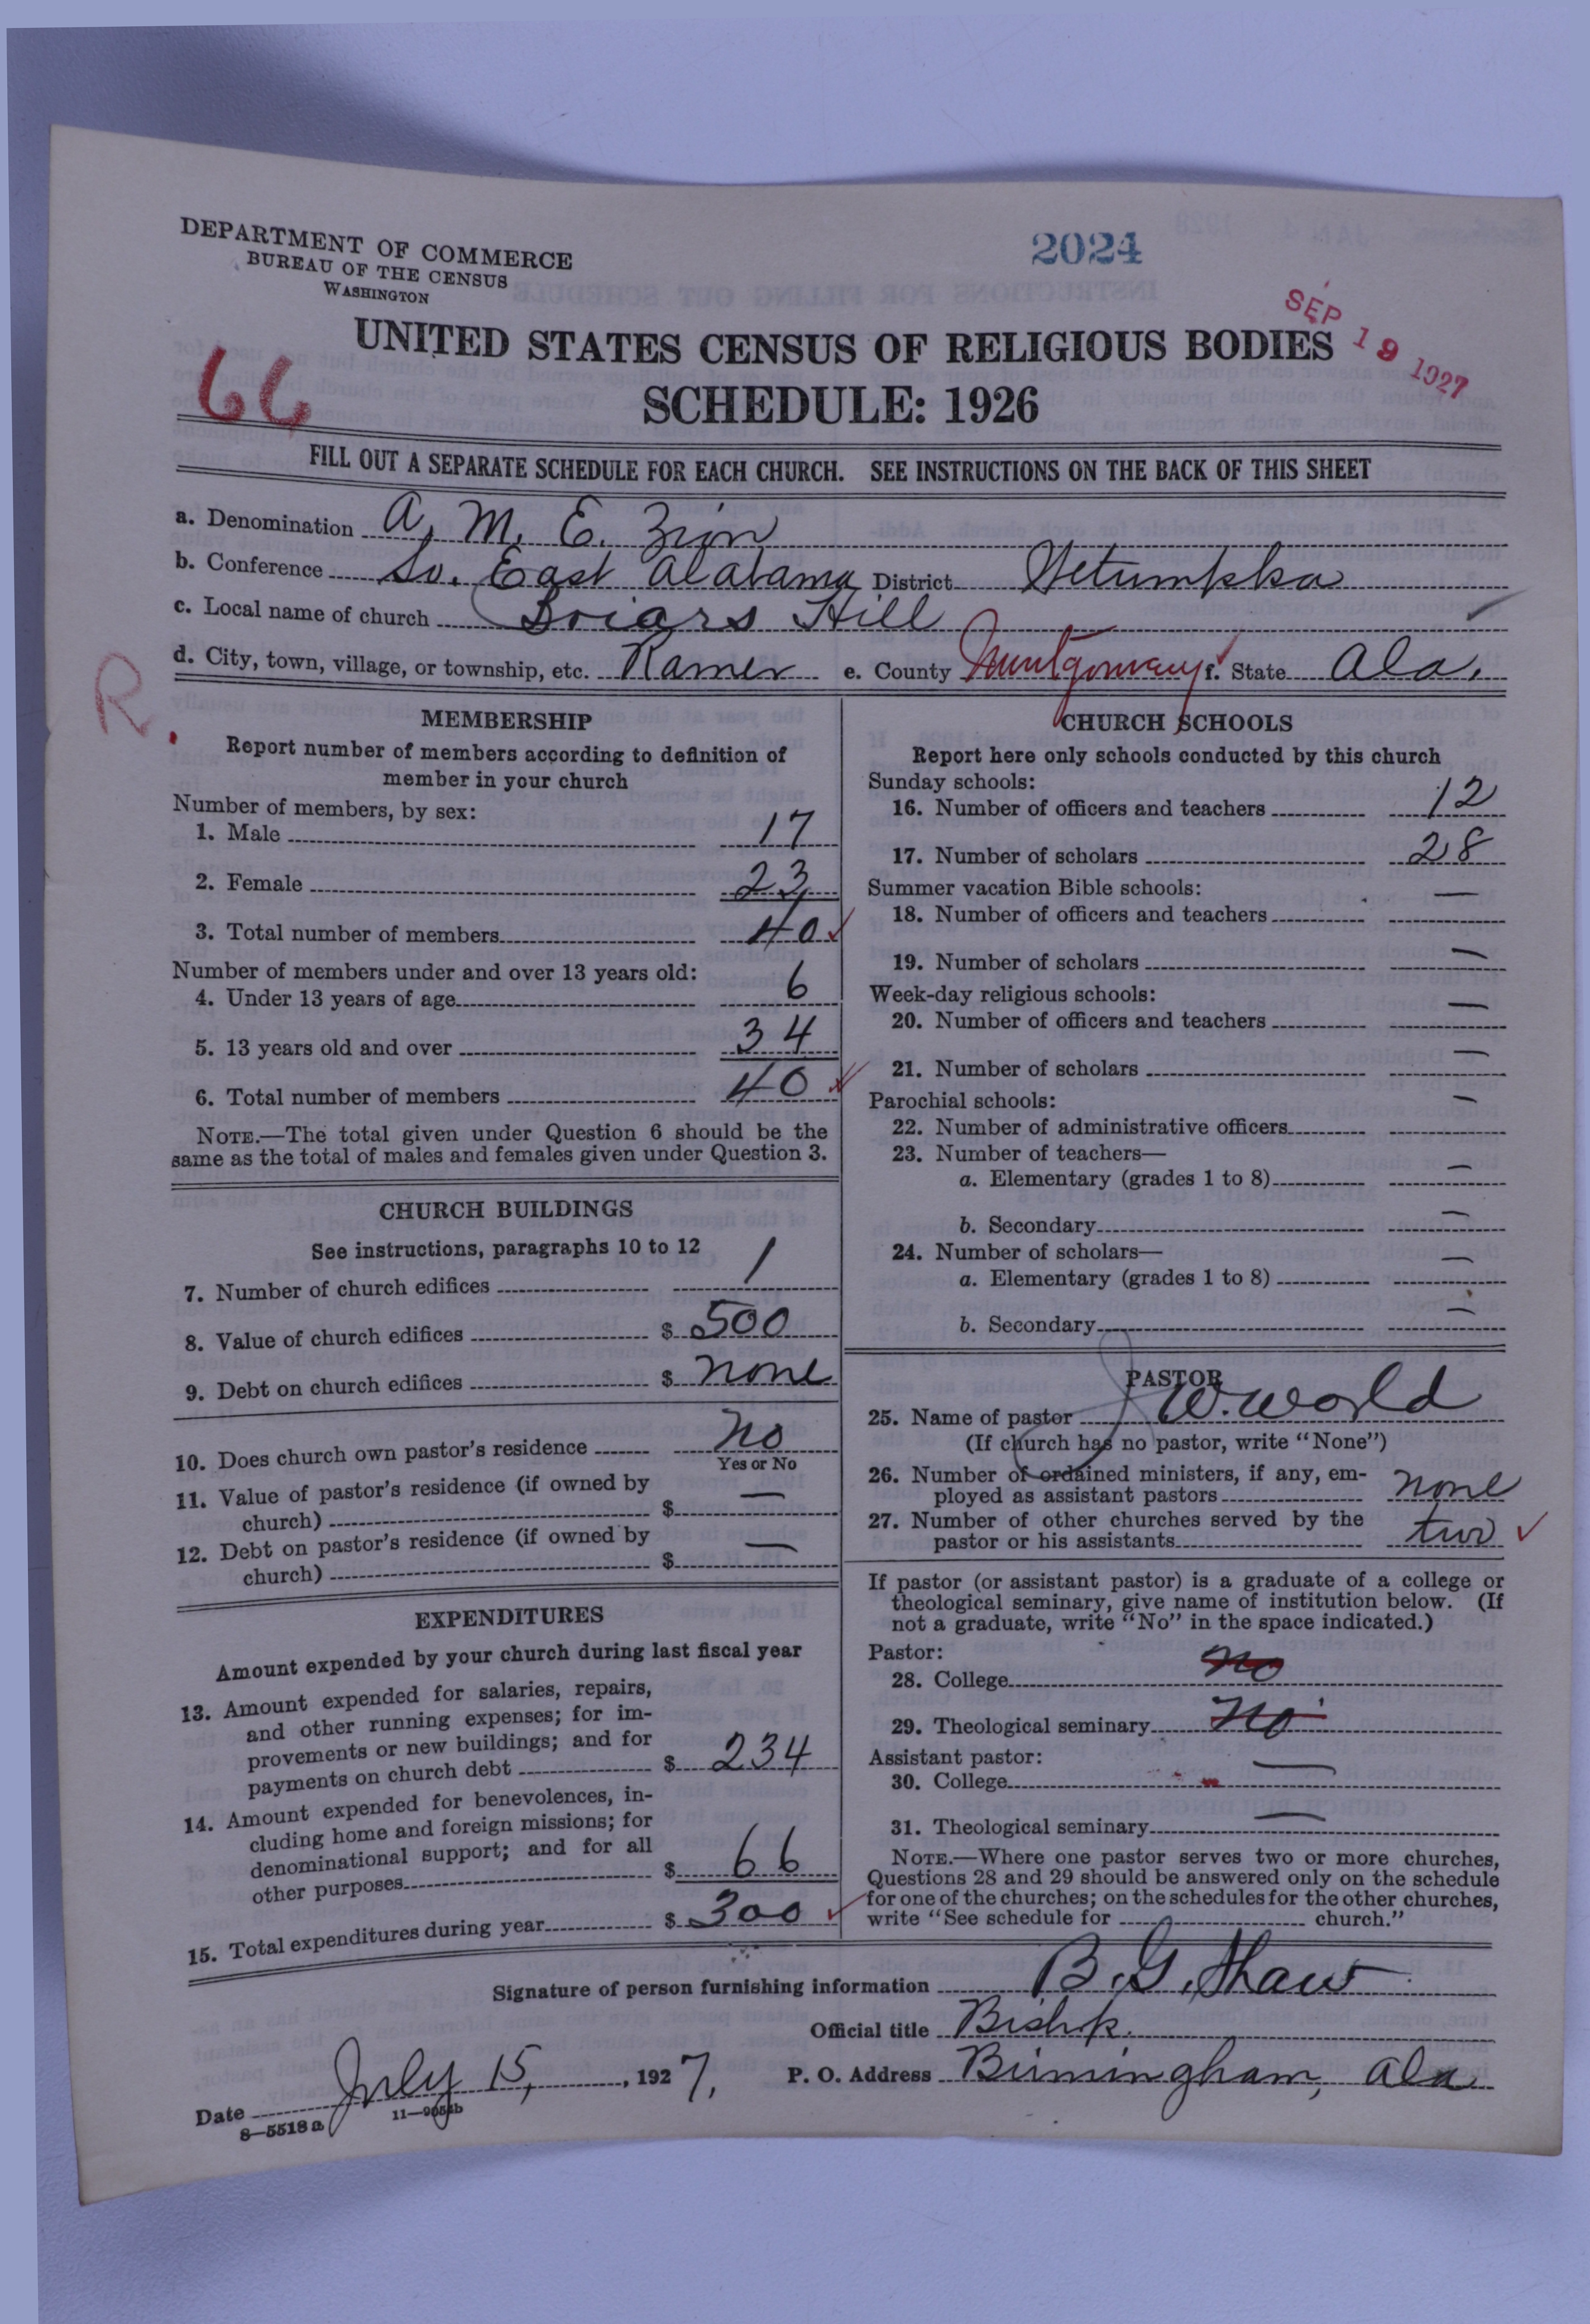 DEPARTMENT OF COMMERCE
BUREAU OF THE CENSUS
WASHINGTON
2024
SEP 19 1927
66
UNITED STATES CENSUS OF RELIGIOUS BODIES
SCHEDULE: 1926
FILL OUT A SEPARATE SCHEDULE FOR EACH CHURCH. SEE INSTRUCTIONS ON THE BACK OF THIS SHEET
a. Denomination A. M. E. Zion
b. Conference So. East Alabama District Wetumpka
c. Local name of church Briars Hill
d. City, town, village, or township, etc. Ramer e. County Montgomery f. State Ala.
R.
MEMBERSHIP
Report number of members according to definition of
member in your church
Number of members, by sex:
1. Male 17
2. Female 23
3. Total number of members 40
Number of members under and over 13 years old:
4. Under 13 years of age 6
5. 13 years old and over 34
6. Total number of members 40
NOTE.—The total given under Question 6 should be the
same as the total of males and females given under Question 3.
CHURCH BUILDINGS
See instructions, paragraphs 10 to 12
7. Number of church edifices 1
8. Value of church edifices $ 500
9. Debt on church edifices $ none
10. Does church own pastor's residence No
Yes or No
11. Value of pastor's residence (if owned by
church) $ —
12. Debt on pastor's residence (if owned by
church) $ —
EXPENDITURES
Amount expended by your church during last fiscal year
13. Amount expended for salaries, repairs,
and other running expenses; for im-
provements or new buildings; and for
payments on church debt $ 234
14. Amount expended for benevolences, in-
cluding home and foreign missions; for
denominational support; and for all
other purposes $ 66
15. Total expenditures during year $ 300
CHURCH SCHOOLS
Report here only schools conducted by this church
Sunday schools:
16. Number of officers and teachers 12
17. Number of scholars 28
Summer vacation Bible schools:
18. Number of officers and teachers —
19. Number of scholars —
Week-day religious schools:
20. Number of officers and teachers —
21. Number of scholars —
Parochial schools:
22. Number of administrative officers —
23. Number of teachers—
a. Elementary (grades 1 to 8) —
b. Secondary —
24. Number of scholars—
a. Elementary (grades 1 to 8) —
b. Secondary —
PASTOR
25. Name of pastor J W. World
(If church has no pastor, write "None")
26. Number of ordained ministers, if any, em-
ployed as assistant pastors none
27. Number of other churches served by the
pastor or his assistants two
If pastor (or assistant pastor) is a graduate of a college or
theological seminary, give name of institution below. (If
not a graduate, write "No" in the space indicated.)
Pastor:
28. College no
29. Theological seminary No
Assistant pastor:
30. College —
31. Theological seminary —
NOTE.—Where one pastor serves two or more churches,
Questions 28 and 29 should be answered only on the schedule
for one of the churches; on the schedules for the other churches,
write "See schedule for church."
Signature of person furnishing information B. G. Shaw
Official title Bishp.
Date July 15, 1927, P. O. Address Birmingham, Ala
8—5518 a 11—9054b